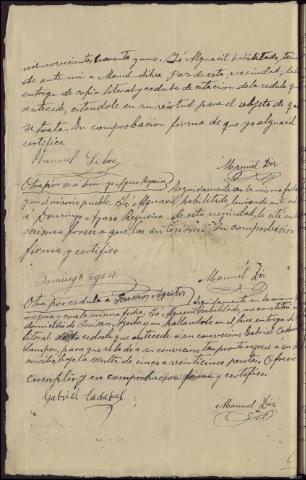 mil novecientos, treinta y uno. Yó Alguacil habilitado, teniendo
do ante mi a Manuel Silva Paz de esta vecindad, le hice
entrega de copia literal y cedula de citacion de la cedula que
antecede, citandole en su virtud para el objeto de que
se trata. En comprobacion forma de que yo alguacil
certifico.
Manuel Silva
Manuel Diz
Otra por si a Domingo Agaso Regueira Seguidamente en la misma fecha
y en el mismo pueblo. Yó Alguacil habilitado, teniendo ante mi
a Domingo Agaso Regueira de esta vecindad, le cite en la
misma forma que los anteriores. En comprobacion
firma y certifico.
Domingo Agaso
Manuel Diz
Otra por cedula a Seguidamente en la misma
y en esta misma fecha. Yó Alguacil habilitado, me constitui en
domicilio de y no hallandole en el hice entrega
literal de la cedula que antecede a su convecino Gabriel
para que el la de a su convecino tan pronto regrese a su
domicilio bajo la multa de cinco a veinticinco pesetas. Ofrecio
cumplir, y en comprobacion firma y certifico.
Gabriel Cadabal
Manuel Diz